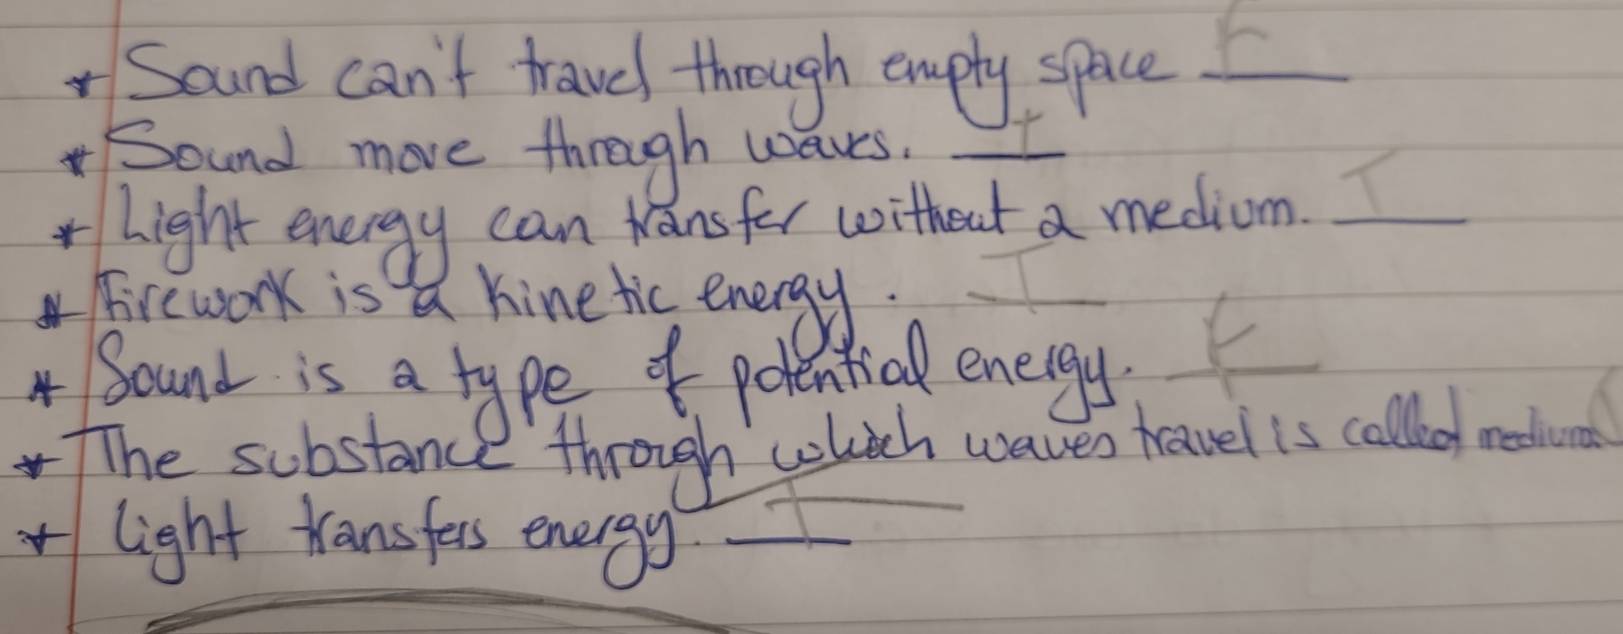 * Sound can't travel through empty space F
* Sound move through waves. T
* Light energy can transfer without a medium. T
* Firework is a kinetic energy. T
* Sound is a type of potential energy. F
* The substance through which waves travel is called medium
* light transfers energy. T